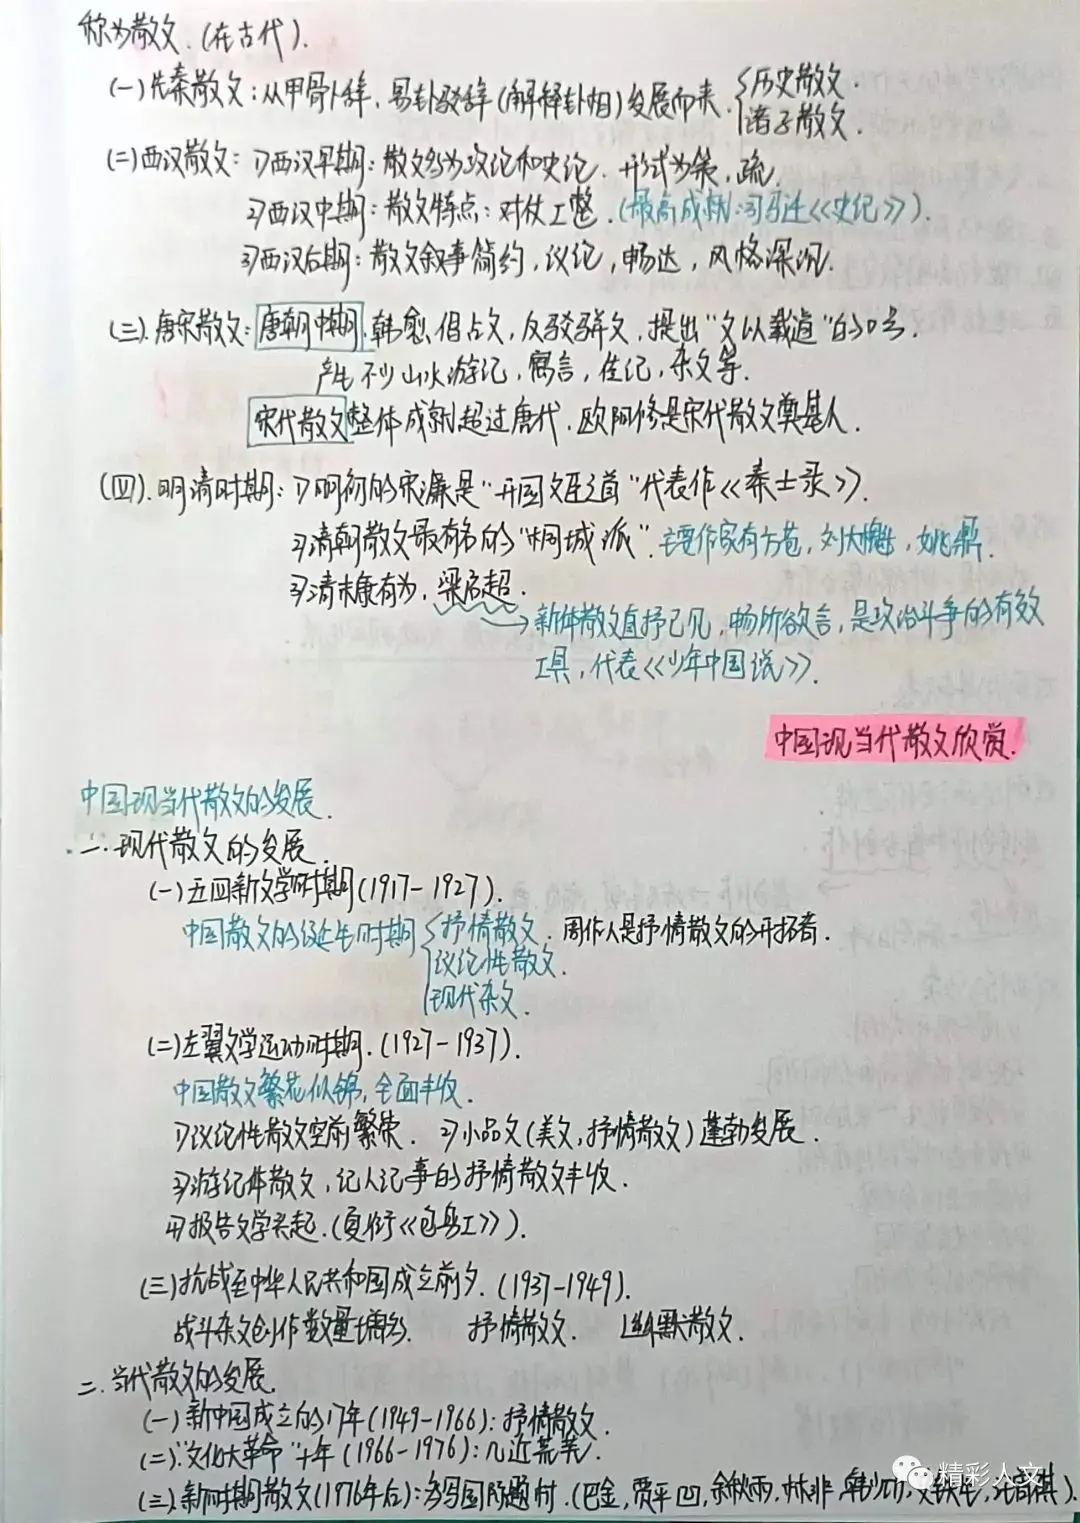 称为散文.(在古代).
(一)先秦散文:从甲骨卜辞,易卦驳辞(解释卦相)发展而来.{历史散文.
诸子散文.
(二)西汉散文: 1)西汉早期:散文多为政论和史论. 形式为策,疏.
2)西汉中期:散文特点:对仗工整.(最高成就:司马迁《史记》).
3)西汉后期:散文叙事简约,议论,畅达,风格深沉.
(三).唐宋散文:唐朝中期,韩愈倡古文,反驳骈文,提出"文以载道"的口号.
产生不少山水游记,寓言,传记,杂文等.
宋代散文整体成就超过唐代.欧阳修是宋代散文奠基人.
(四).明清时期:1)明初的宋濂是"开国文臣之首"代表作《秦士录》.
2)清朝散文最有名的"桐城派".主要作家有方苞,刘大櫆,姚鼐.
3)清末康有为,梁启超.
新体散文直抒己见,畅所欲言,是政治斗争的有效
工具,代表《少年中国说》.
中国现当代散文欣赏.
中国现当代散文的发展.
一.现代散文的发展.
(一)五四新文学时期(1917-1927).
中国散文的诞生时期{抒情散文. 周作人是抒情散文的开拓者.
议论性散文.
现代杂文.
(二)左翼文学运动时期.(1927-1937).
中国散文繁花似锦,全面丰收.
1)议论性散文空前繁荣. 2)小品文(美文,抒情散文)蓬勃发展.
3)游记体散文,记人记事的抒情散文丰收.
4)报告文学兴起.(夏衍《包身工》).
(三)抗战至中华人民共和国成立前夕.(1937-1949).
战斗杂文创作数量增多. 抒情散文. 幽默散文.
二.当代散文的发展.
(一)新中国成立的17年(1949-1966):抒情散文.
(二)."文化大革命"十年(1966-1976):几近荒芜.
(三).新时期散文(1976年后):多写国际题材.(巴金,贾平凹,余秋雨,林非,韩少功,史铁生,汪曾祺).
精彩人文